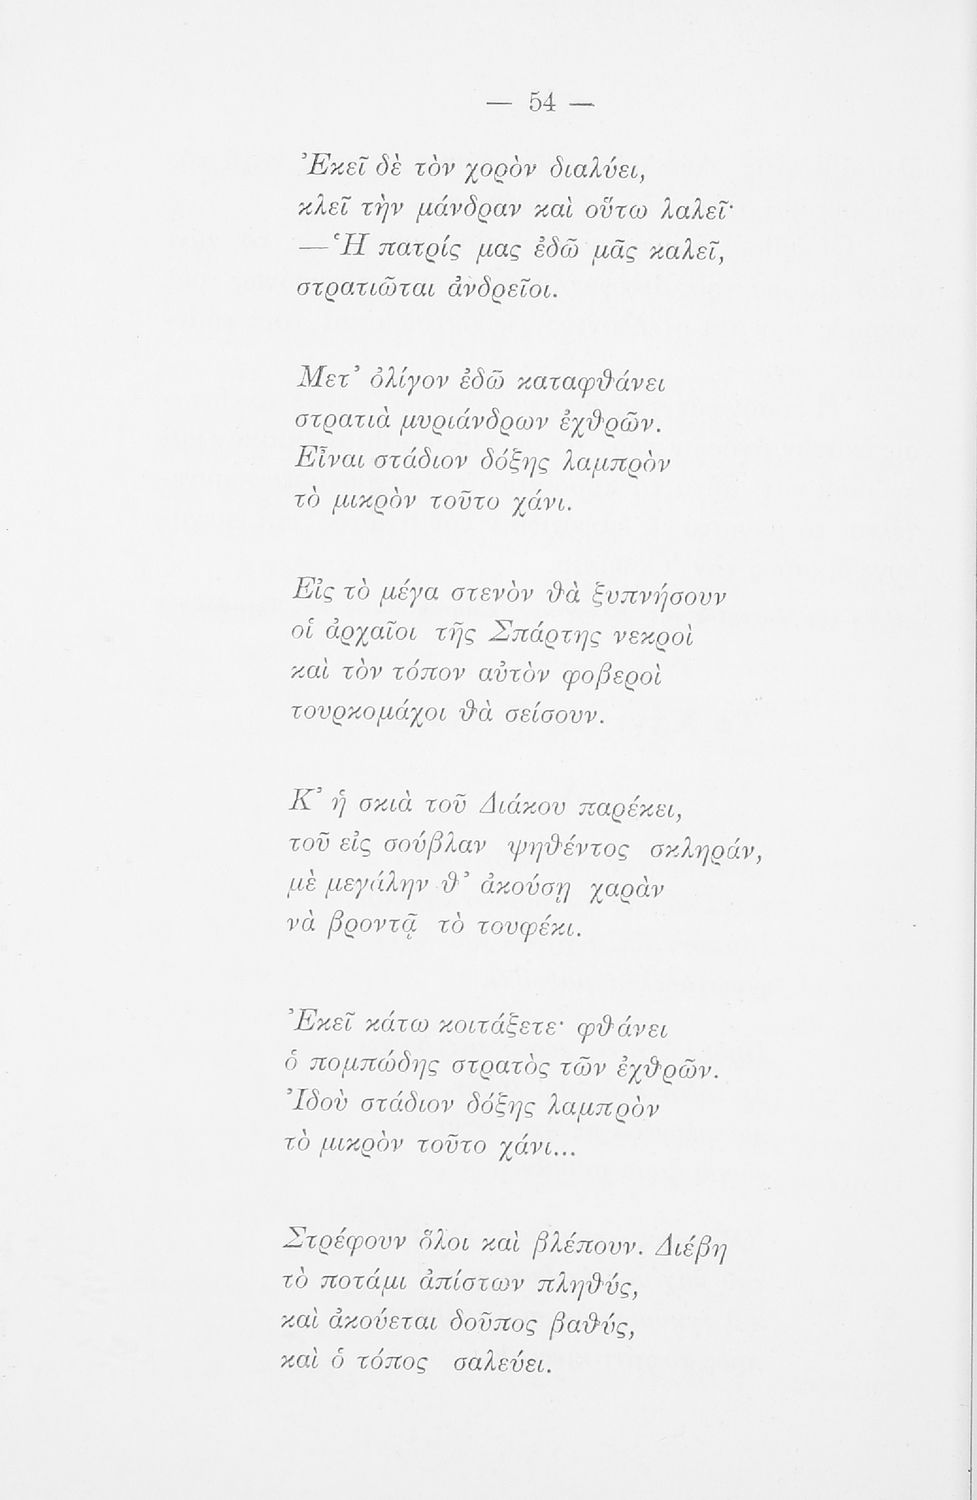 — 54 —
Ἐκεῖ δὲ τὸν χορὸν διαλύει,
κλεῖ τὴν μάνδραν καὶ οὕτω λαλεῖ·
— Ἡ πατρίς μας ἐδῶ μᾶς καλεῖ,
στρατιῶται ἀνδρεῖοι.
Μετ᾽ ὀλίγον ἐδῶ καταφθάνει
στρατιὰ μυριάνδρων ἐχθρῶν.
Εἶναι στάδιον δόξης λαμπρὸν
τὸ μικρὸν τοῦτο χάνι.
Εἰς τὸ μέγα στενὸν θὰ ξυπνήσουν
οἱ ἀρχαῖοι τῆς Σπάρτης νεκροὶ
καὶ τὸν τόπον αὐτὸν φοβεροὶ
τουρκομάχοι θὰ σείσουν.
Κ᾽ ἡ σκιὰ τοῦ Διάκου παρέκει,
τοῦ εἰς σούβλαν ψηθέντος σκληράν,
μὲ μεγάλην θ᾽ ἀκούσῃ χαρὰν
νὰ βροντᾷ τὸ τουφέκι.
Ἐκεῖ κάτω κοιτάξετε· φθάνει
ὁ πομπώδης στρατὸς τῶν ἐχθρῶν.
Ἰδοὺ στάδιον δόξης λαμπρὸν
τὸ μικρὸν τοῦτο χάνι...
Στρέφουν ὅλοι καὶ βλέπουν. Διέβη
τὸ ποτάμι ἀπίστων πληθύς,
καὶ ἀκούεται δοῦπος βαθύς,
καὶ ὁ τόπος σαλεύει.